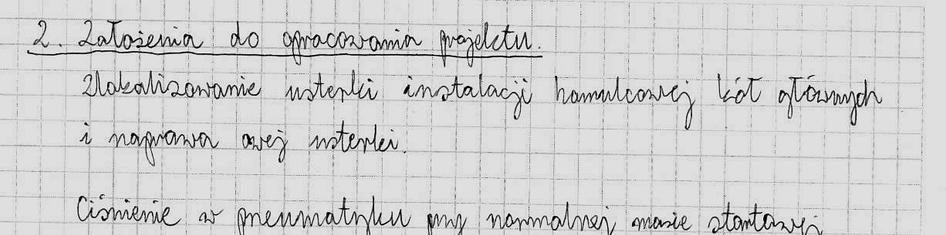 2. Założenia do opracowania projektu.
Zlokalizowanie usterki instalacji hamulcowej kół głównych
i naprawa owej usterki.
Ciśnienie w pneumatyku przy normalnej masie startowej